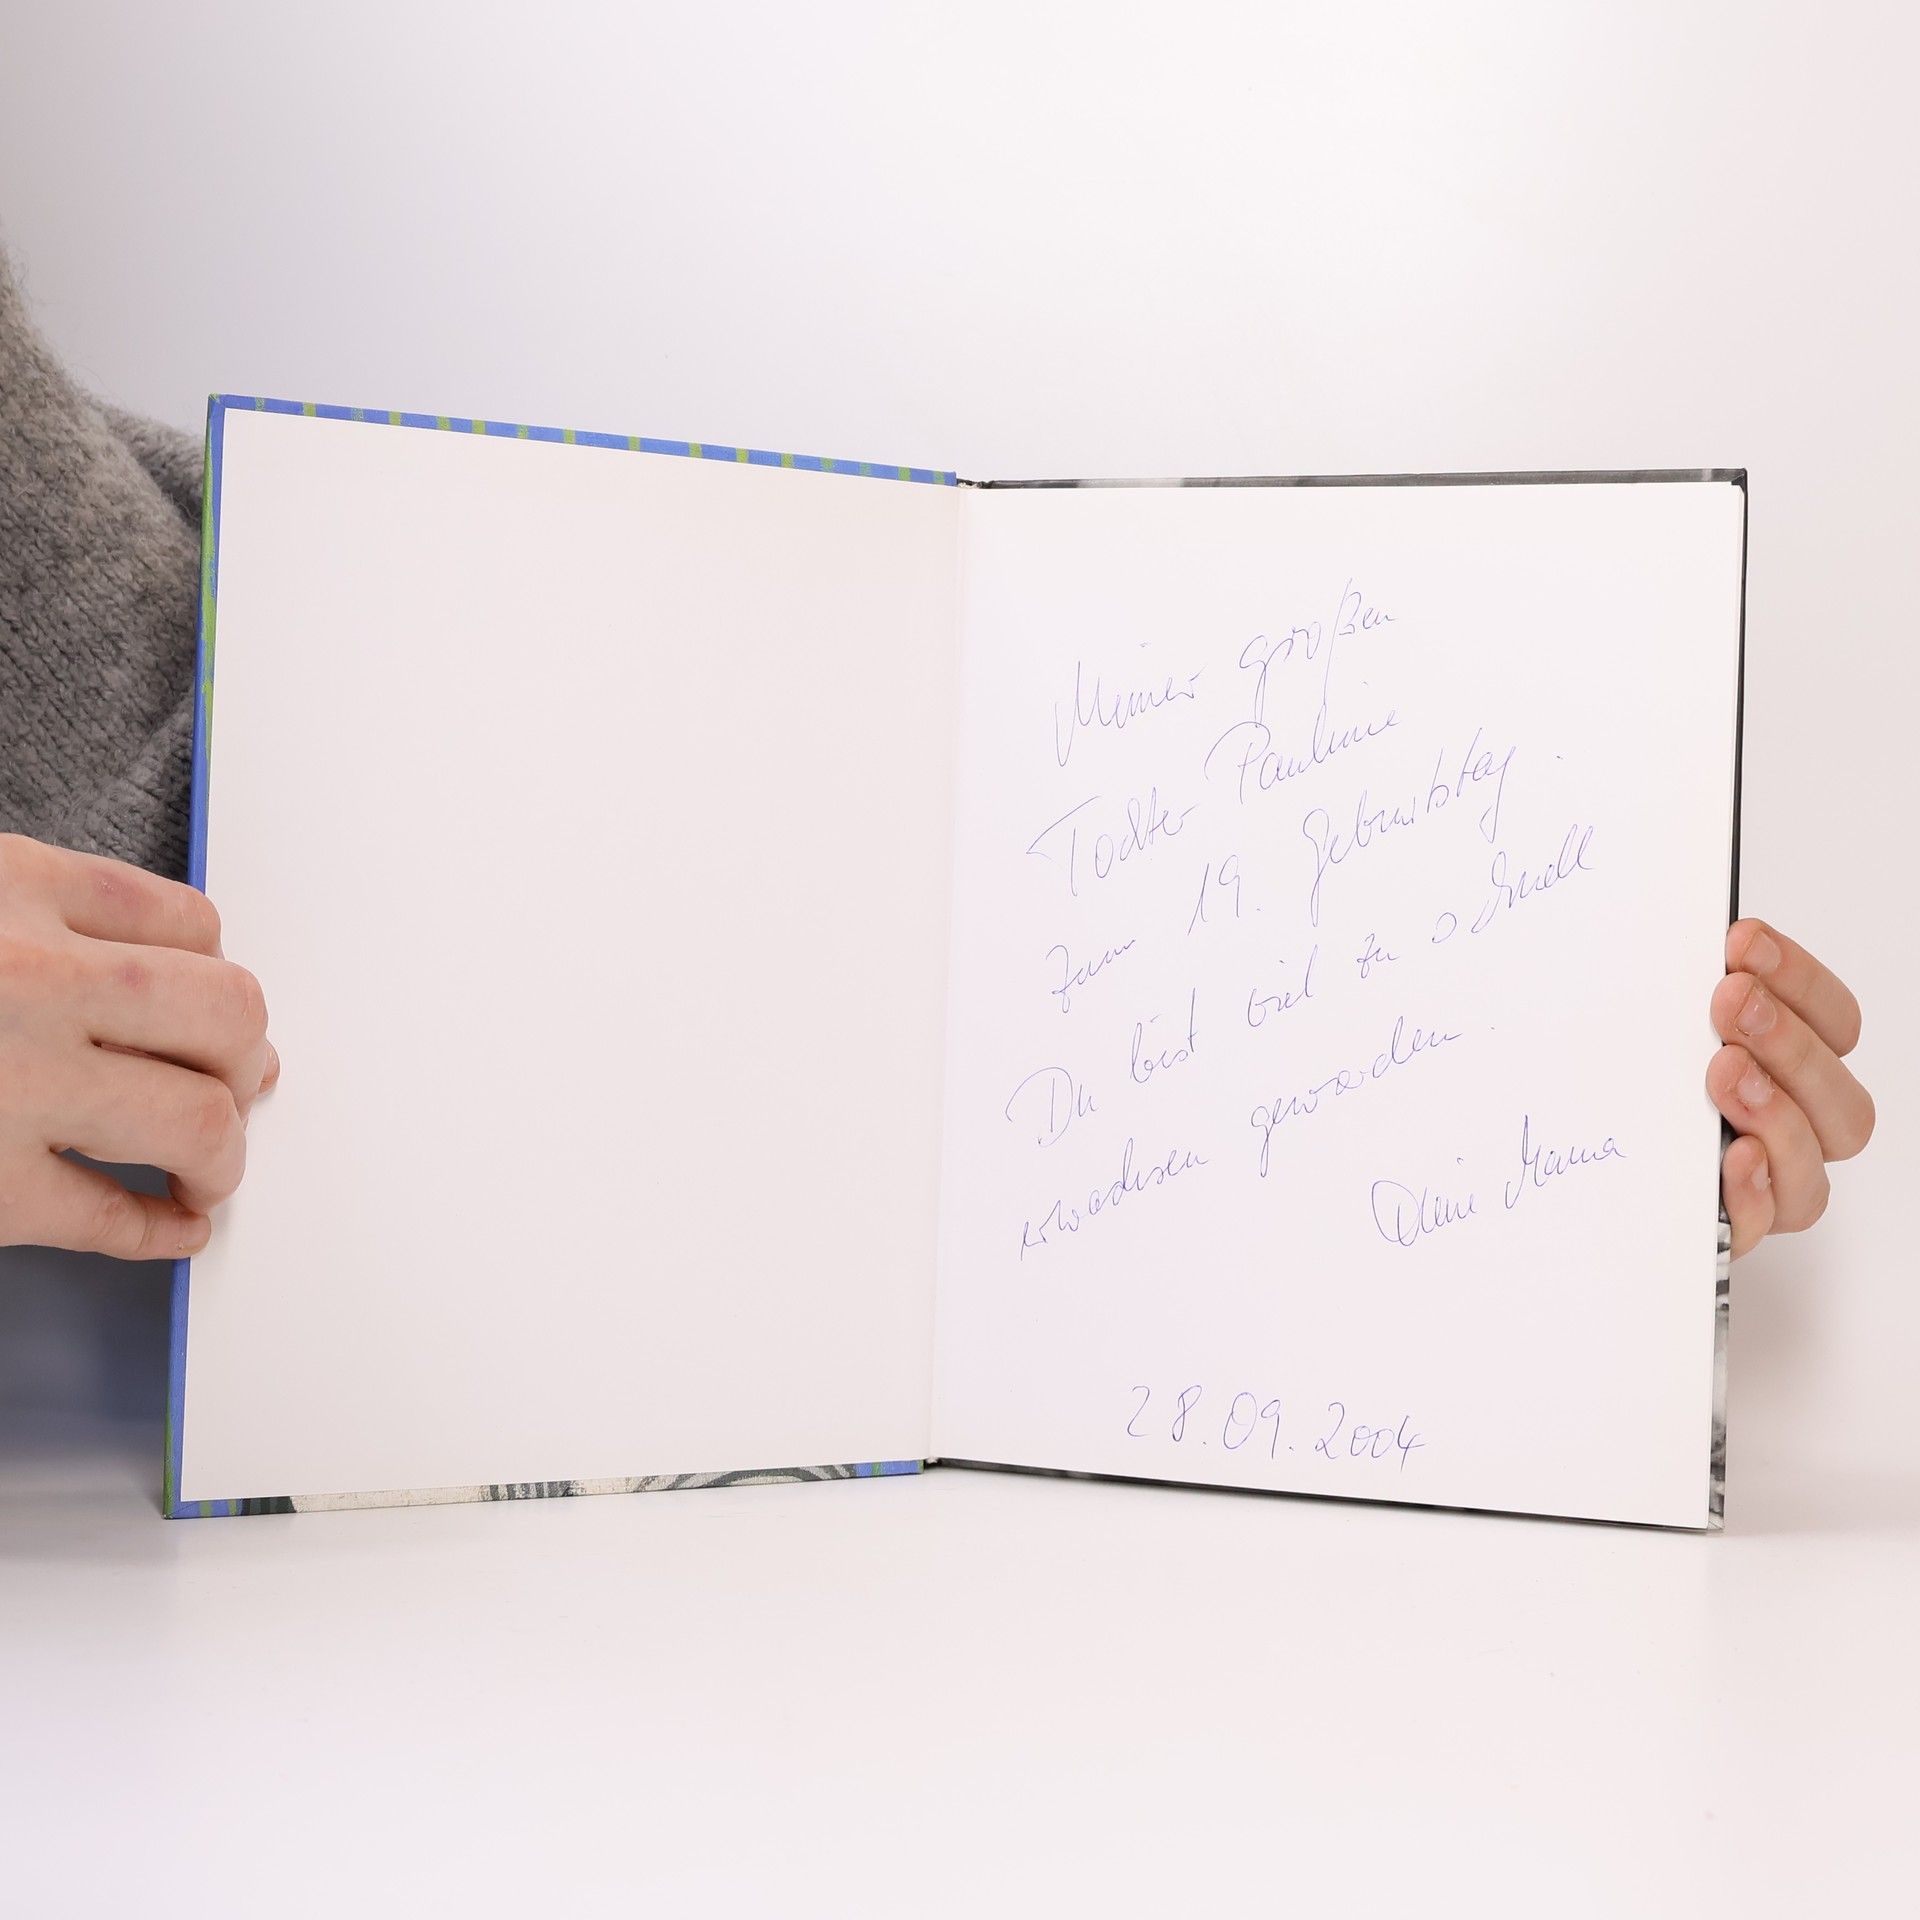 Meiner großen
Tochter Pauline
zum 19. Geburtstag.
Du bist viel zu schnell
erwachsen geworden.
Deine Mama
28.09.2004